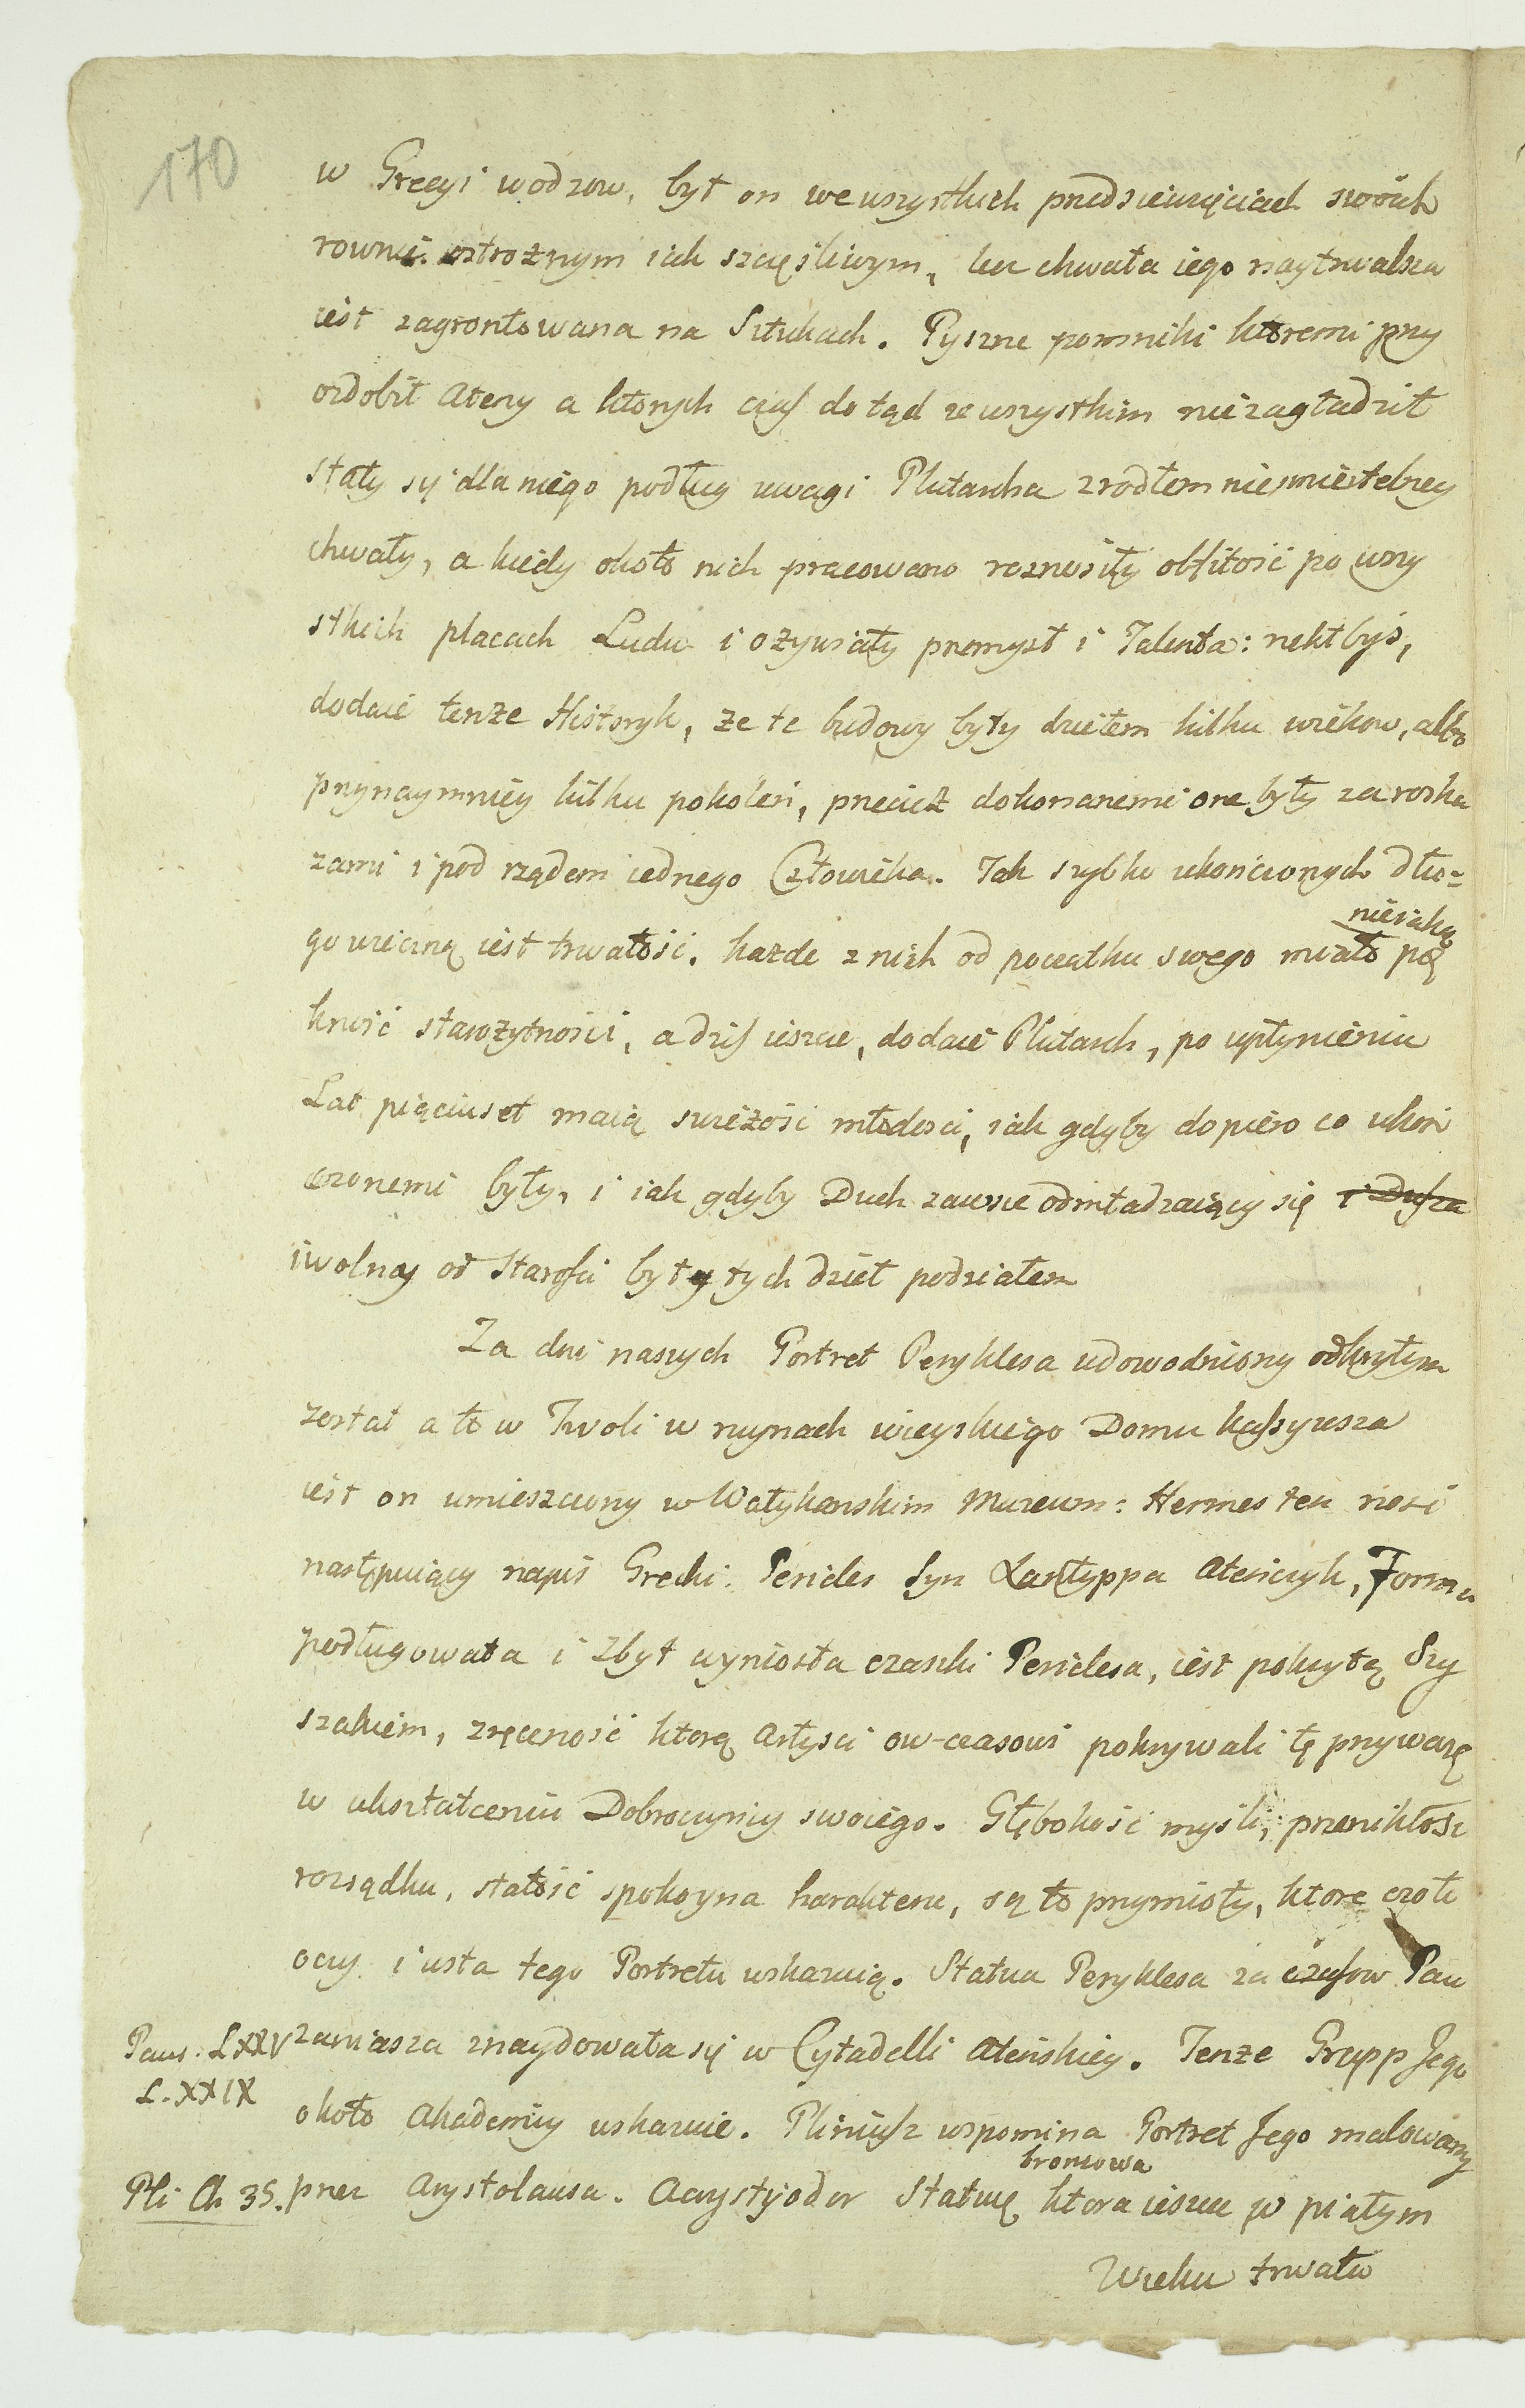 170
w Grecyi wodzow, był on we wszystkich przedsiewzięciach swoich
rownie ostrożnym iak szczęśliwym, lecz chwała iego naytrwalsza
iest zagrontowana na Sztukach. Pyszne pomniki ktoremi przy
ozdobił Ateny a ktorych czas do tąd ze wszystkim nie zagładził
stały się dla niego podług uwagi Plutarcha zrodłem niesmiertelney
chwały, a kiedy około nich pracowano roznosiły obfitość po wszy
stkich placach Ludu i ożywiały przemysł i Talenta: rzekłbyś,
dodaie tenże Historyk, że te budowy były dziełem kilku wiekow, albo
przynaymniey kilku pokoleń, przecież dokonanemi one były za rozka
zami i pod rządem iednego Człowieka. Tak szybko ukończonych dłu=
go wieczną iest trwałość. każde z nich od początku swego miało nieiaką pię
kność starożytności, a dziś ieszcze, dodaie Plutarch, po upłynieniu
Lat pięciuset maią swieżość młodosci, iak gdyby dopiero co ukoń
czonemi były, i iak gdyby Duch zawsze odmładzaiący się i Dusza
i wolny od Starości był tych dzieł podziałem
Za dni naszych Portret Peryklesa udowodniony odkrytym
został a to w Tivoli w ruynach wieyskiego Domu Kassyusza
iest on umieszczony w Watykanskim Muzeum: Hermes ten nosi
następuiący napis Grecki: Pericles Syn Xantyppa Ateńczyk, Forma
podługowata i zbyt wyniosła czaszki Periclesa, iest pokrytą Szy
szakiem, zręczność którą Artysci ow-czasowi pokrywali tę przywarę
w ukształceniu Dobroczyńcy swoiego. Głębokość myśli, przenikłość
rozsądku, stałość spokoyna harakteru, są to przymioty, ktore czoło
oczy i usta tego Portretu wskazuią. Statua Peryklesa za czasow Pau
Paus: L XXV
zaniasza znaydowała się w Cytadelli Ateńskiey. Tenże Grupp Jego
L. XXIX
około Akademiy wskazuie. Pliniusz wspomina Portret Jego malowany
Pli Ch 35.
przez Arystolausa. Acrystyodor Statuę bronzowa ktora ieszcze w piątym
Wieku trwała